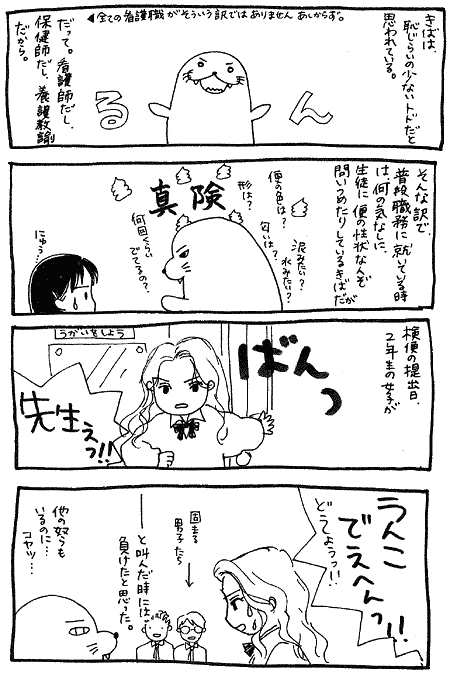 きばは、
恥じらいの少ないトドだと
思われている。
◀全ての看護職がそういう訳ではありません あしからず。
るん
だって。看護師だし、
保健師だし、養護教諭
だから。
そんな訳で、
普段職務に就いている時
は、何の気なしに、
生徒に便の性状なんぞ
問いつめたりしているきばだが
真険
便の色は?
形は?
匂いは?
泥みたい?
水みたい?
何回くらい
でてるの?
にゅ…?
検便の提出日、
2年生の女子が
うがいをしよう
ばんっ
先生ぇっ!!
うんこ
でえへんっ!!
どうしょうっ!!
固まる
男子たち
と叫んだ時には、
負けたと思った。
他の奴らも
いるのに…
コヤツ…